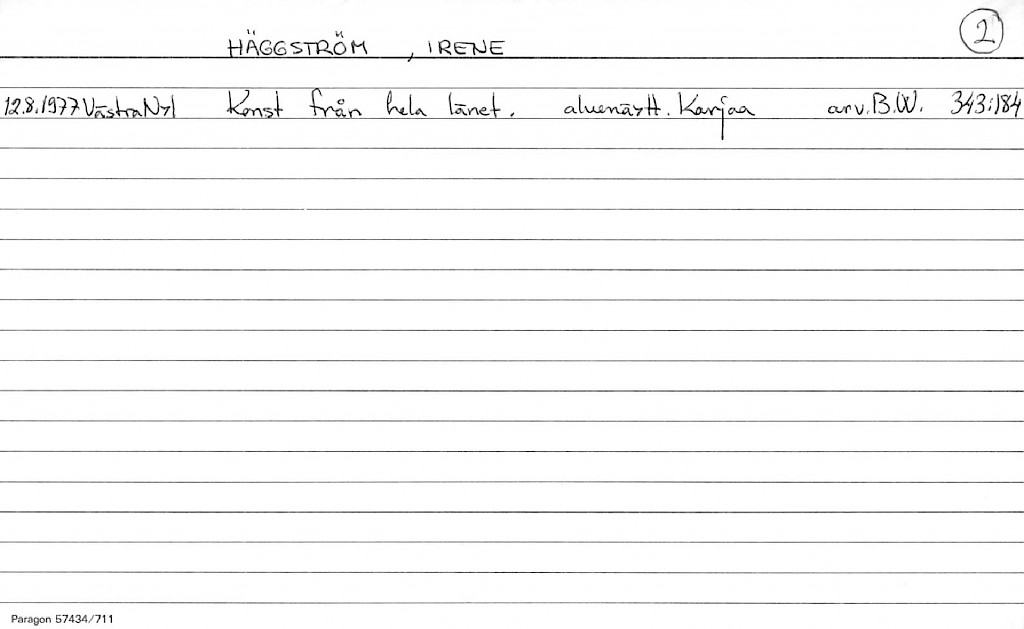 HÄGGSTRÖM , IRENE 2
12.8.1977 Västra Nyl Konst från hela länet. aluenäytt. Karjaa arv. B.W. 343:184
Paragon 57434/711